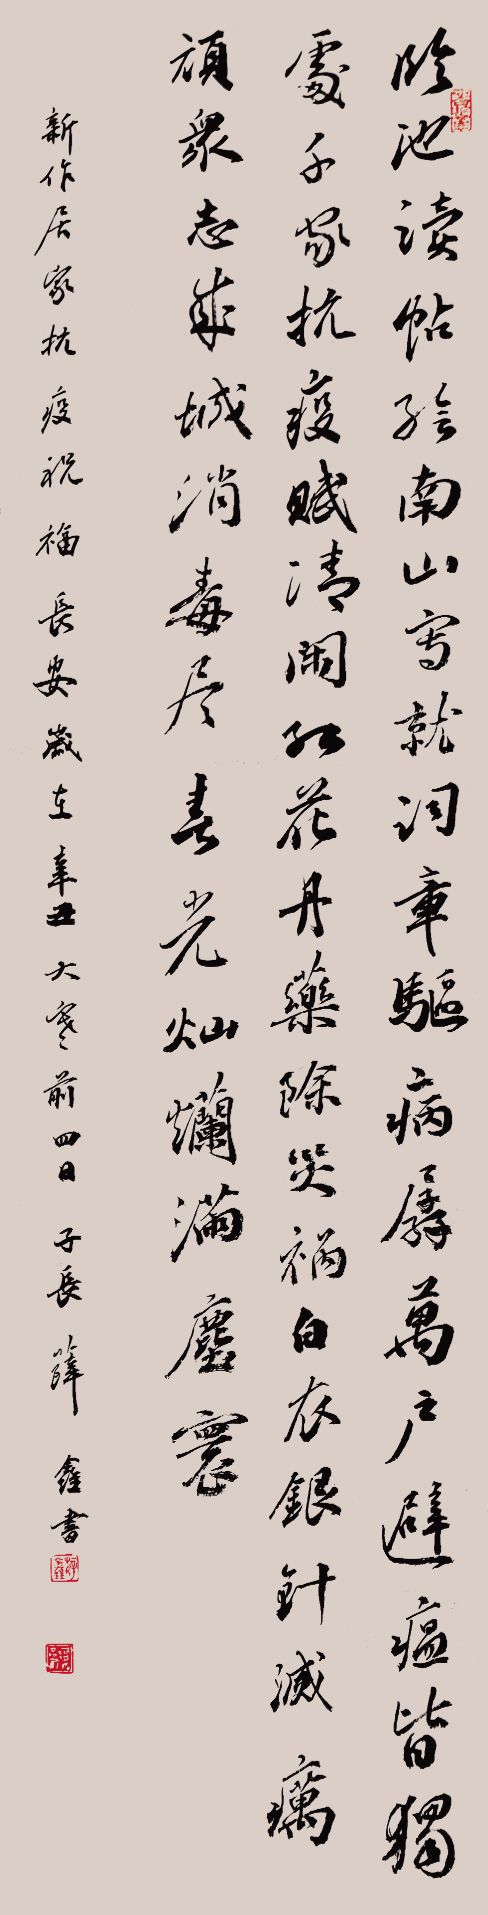 临池读帖绘南山写就词章驅病孱萬户避瘟皆獨
處千家抗疫賦清閑红花丹藥除災禍白衣銀針滅癘
頑衆志成城消毒尽春光灿爛满塵寰
新作居家抗疫祝福長安歲在辛丑大寒前四日子長薛鑫書